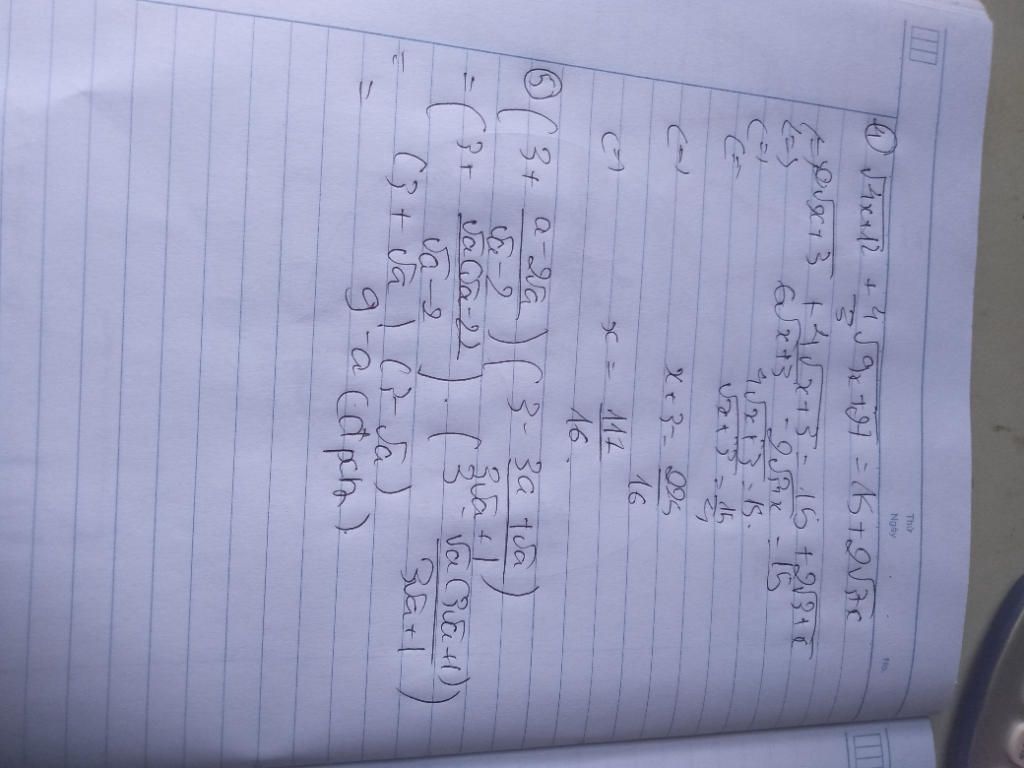 Thứ
Ngày No.
4) √4x+12 + 4/3 √9x+27 = 15 + 2√3x
<=> 2√x+3 + 4√x+3 = 15 + 2√3+x
<=> 6√x+3 - 2√3+x = 15
<=> 4√x+3 = 15.
√x+3 = 15/4
<=> x+3 = 225/16
<=> x = 177/16.
5) (3 + a-2√a/√a-2)(3 - 3a+√a/3√a+1)
= (3 + √a(√a-2)/√a-2) . (3 - √a(3√a+1)/3√a+1)
= (3 + √a) (3-√a)
= 9 - a (đpcm).